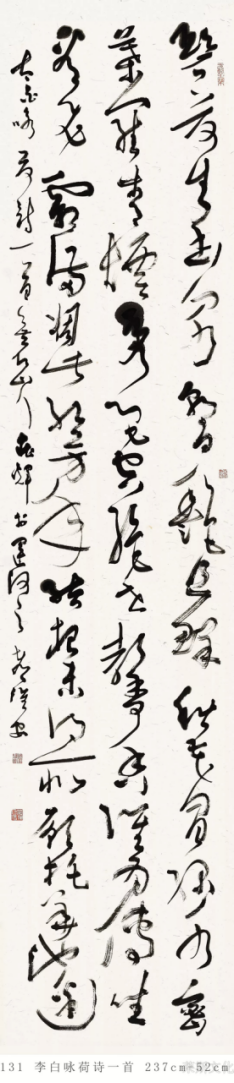 碧荷生幽泉朝日艳且鲜秋花冒绿水密
叶罗青烟秀色空绝世馨香谁为传坐
看飞霜满凋此红芳年结根未得所愿托华池边
太白咏荷诗一首
131 李白咏荷诗一首 237cm×52cm